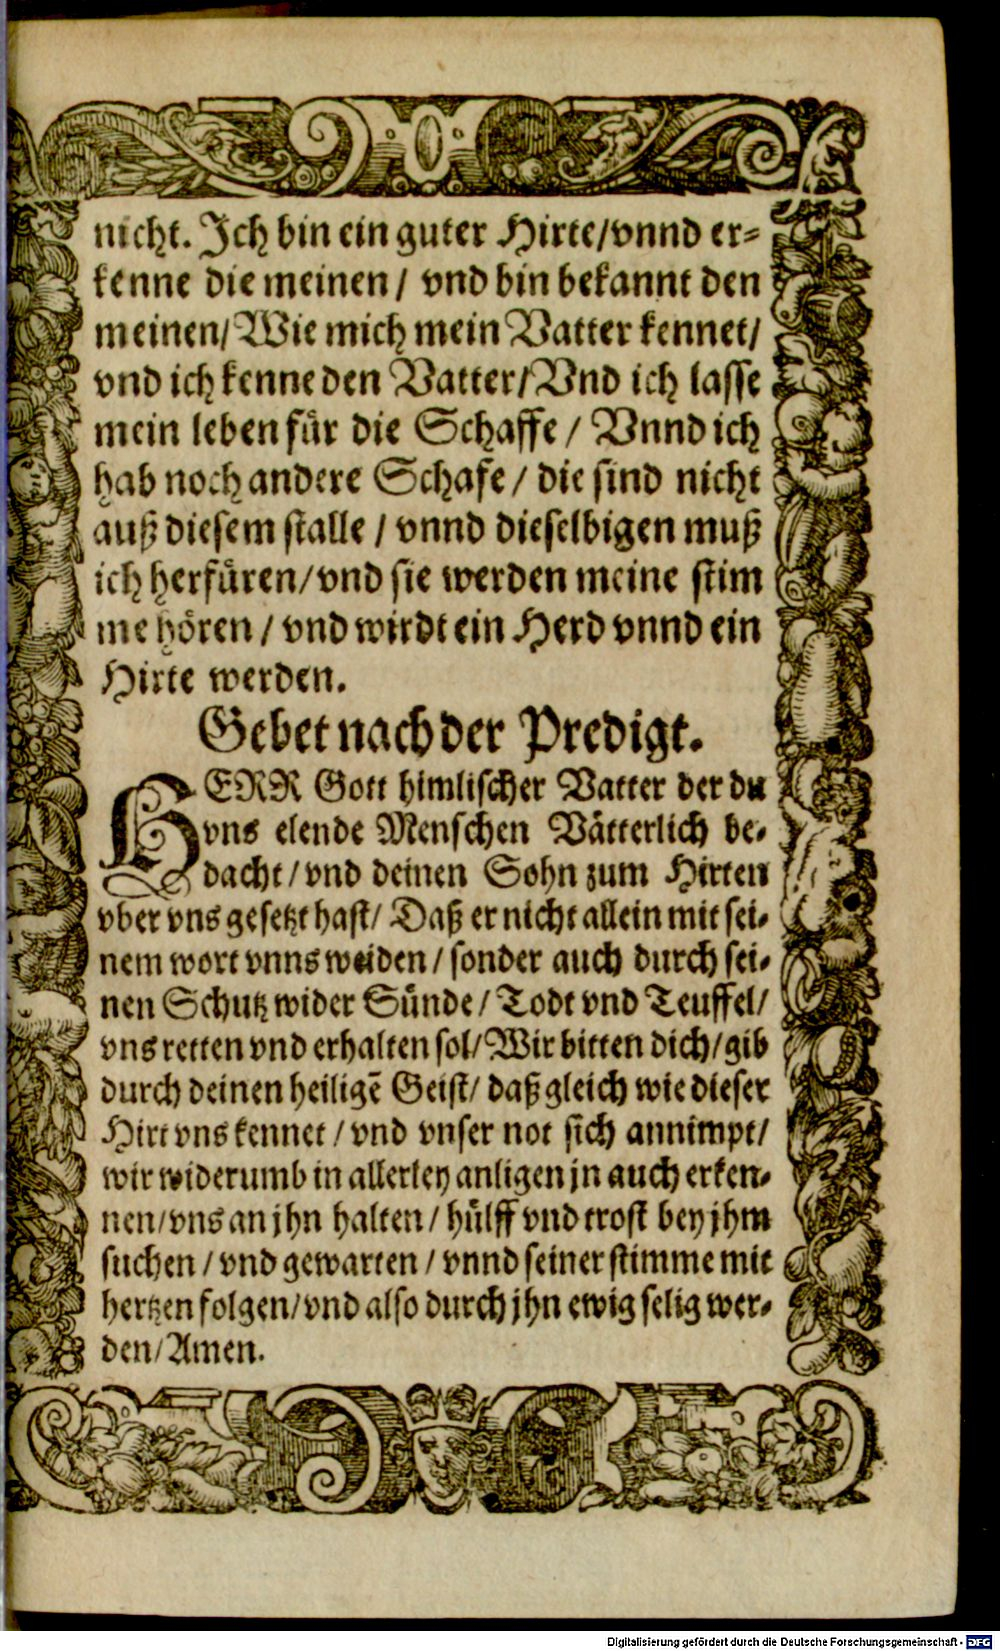 nicht. Ich bin ein guter Hirte/vnnd er⸗
kenne die meinen / vnd bin bekannt den
meinen/Wie mich mein Vatter kennet/
vnd ich kenne den Vatter/Vnd ich lasse
mein leben für die Schaffe / Vnnd ich
hab noch andere Schafe / die sind nicht
auß diesem stalle / vnnd dieselbigen muß
ich herfüren/vnd sie werden meine stim
me hören / vnd wirdt ein Herd vnnd ein
Hirte werden.
Gebet nach der Predigt.
HERR Gott himlischer Vatter der du
vns elende Menschen Vätterlich be⸗
dacht / vnd deinen Sohn zum Hirten
vber vns gesetzt hast/ Daß er nicht allein mit sei⸗
nem wort vnns weiden / sonder auch durch sei⸗
nen Schutz wider Sünde / Todt vnd Teuffel/
vns retten vnd erhalten sol/ Wir bitten dich/gib
durch deinen heiligẽ Geist/ daß gleich wie dieser
Hirt vns kennet / vnd vnser not sich annimpt/
wir widerumb in allerley anligen jn auch erken⸗
nen/vns an jhn halten / hülff vnd trost bey jhm
suchen / vnd gewarten / vnnd seiner stimme mit
hertzen folgen/vnd also durch jhn ewig selig wer⸗
den/Amen.
Digitalisierung gefördert durch die Deutsche Forschungsgemeinschaft - DFG